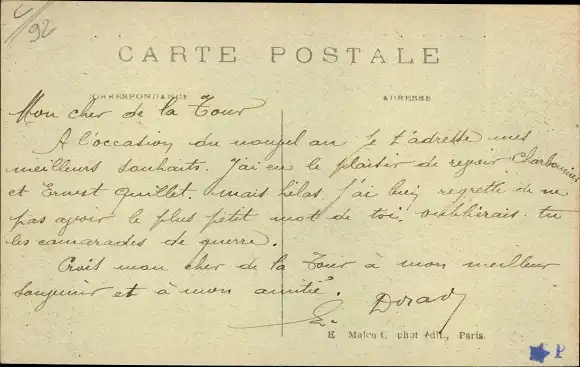 4/92
CARTE POSTALE
CORRESPONDANCE
ADRESSE
Mon cher de la Tour
A l'occasion du nouvel an Je t'adresse mes
meilleurs souhaits. J'ai eu le plaisir de revoir Charbonnier
et Ernest Quillet. mais hélas, j'ai bien regretté de ne
pas avoir le plus petit mot de toi. oublierais tu
les camarades de guerre.
Crois mon cher de la Tour à mon meilleur
souvenir et à mon amitié.
E. Malcuit, phot édit., Paris.
P